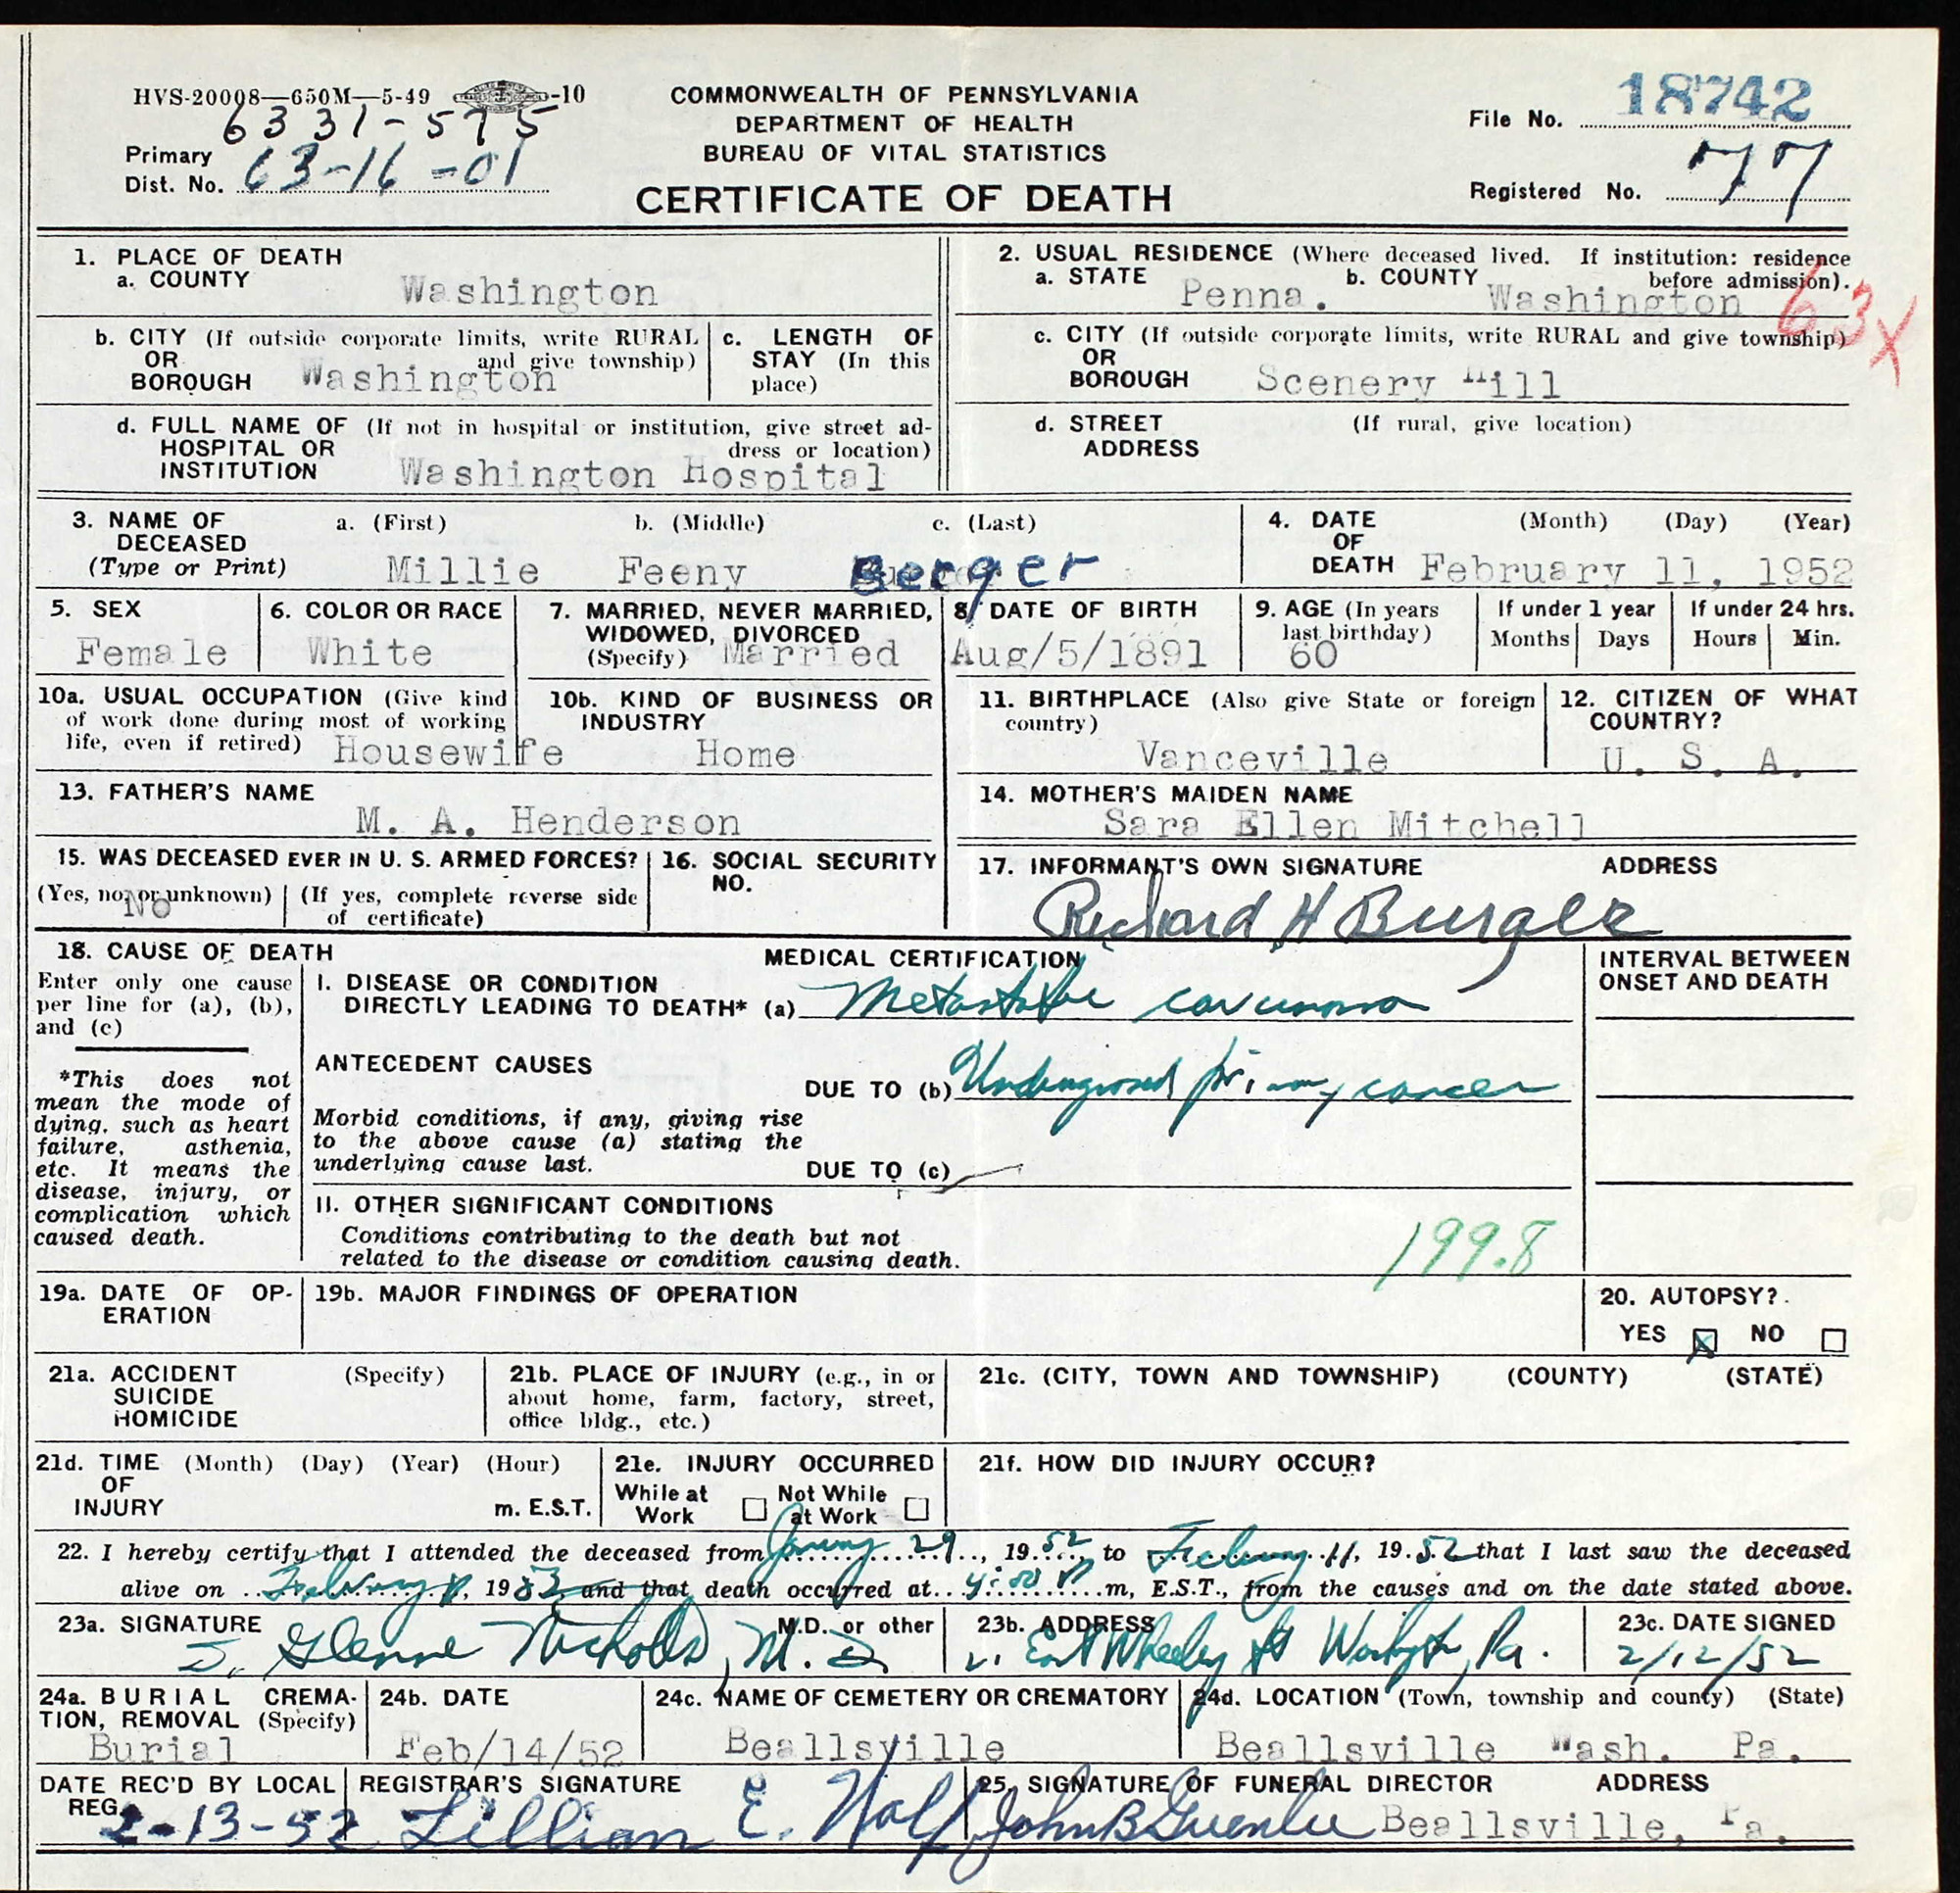 HVS-20008—650M—5-49 -10
6331-575
Primary
Dist. No. 63-16-01
COMMONWEALTH OF PENNSYLVANIA
DEPARTMENT OF HEALTH
BUREAU OF VITAL STATISTICS
CERTIFICATE OF DEATH
File No. 18742
Registered No. 77
1. PLACE OF DEATH
a. COUNTY
Washington
b. CITY (If outside corporate limits, write RURAL
OR and give township)
BOROUGH Washington
c. LENGTH OF
STAY (In this
place)
d. FULL NAME OF (If not in hospital or institution, give street ad-
HOSPITAL OR dress or location)
INSTITUTION Washington Hospital
2. USUAL RESIDENCE (Where deceased lived. If institution: residence
a. STATE b. COUNTY before admission).
Penna. Washington 63X
c. CITY (If outside corporate limits, write RURAL and give township)
OR
BOROUGH Scenery Hill
d. STREET (If rural, give location)
ADDRESS
3. NAME OF a. (First) b. (Middle) c. (Last)
DECEASED
(Type or Print) Millie Feeny Berger
4. DATE (Month) (Day) (Year)
OF
DEATH February 11, 1952
5. SEX
Female
6. COLOR OR RACE
White
7. MARRIED, NEVER MARRIED,
WIDOWED, DIVORCED
(Specify) Married
8. DATE OF BIRTH
Aug/5/1891
9. AGE (In years
last birthday)
60
If under 1 year
Months Days
If under 24 hrs.
Hours Min.
10a. USUAL OCCUPATION (Give kind
of work done during most of working
life, even if retired) Housewife
10b. KIND OF BUSINESS OR
INDUSTRY
Home
11. BIRTHPLACE (Also give State or foreign
country)
Vanceville
12. CITIZEN OF WHAT
COUNTRY?
U. S. A.
13. FATHER'S NAME
M. A. Henderson
14. MOTHER'S MAIDEN NAME
Sara Ellen Mitchell
15. WAS DECEASED EVER IN U. S. ARMED FORCES?
(Yes, no, or unknown) (If yes, complete reverse side
of certificate)
No
16. SOCIAL SECURITY
NO.
17. INFORMANT'S OWN SIGNATURE ADDRESS
Richard H Burger
18. CAUSE OF DEATH
Enter only one cause
per line for (a), (b),
and (c)
*This does not
mean the mode of
dying, such as heart
failure, asthenia,
etc. It means the
disease, injury, or
complication which
caused death.
MEDICAL CERTIFICATION
I. DISEASE OR CONDITION
DIRECTLY LEADING TO DEATH* (a) Metastatic carcinoma
ANTECEDENT CAUSES
DUE TO (b) Undiagnosed primary cancer
Morbid conditions, if any, giving rise
to the above cause (a) stating the
underlying cause last.
DUE TO (c)
II. OTHER SIGNIFICANT CONDITIONS
Conditions contributing to the death but not
related to the disease or condition causing death.
199.8
INTERVAL BETWEEN
ONSET AND DEATH
19a. DATE OF OP-
ERATION
19b. MAJOR FINDINGS OF OPERATION
20. AUTOPSY?
YES X NO
21a. ACCIDENT (Specify)
SUICIDE
HOMICIDE
21b. PLACE OF INJURY (e.g., in or
about home, farm, factory, street,
office bldg., etc.)
21c. (CITY, TOWN AND TOWNSHIP) (COUNTY) (STATE)
21d. TIME (Month) (Day) (Year) (Hour)
OF
INJURY m. E.S.T.
21e. INJURY OCCURRED
While at Not While
Work at Work
21f. HOW DID INJURY OCCUR?
22. I hereby certify that I attended the deceased from January 29, 1952 to February 11, 1952 that I last saw the deceased
alive on February, 1952 and that death occurred at m, E.S.T., from the causes and on the date stated above.
23a. SIGNATURE M.D. or other
J. Glenne Nicholls, M.D.
23b. ADDRESS
East Wheeling St Washington, Pa.
23c. DATE SIGNED
2/12/52
24a. BURIAL CREMA-
TION, REMOVAL (Specify)
Burial
24b. DATE
Feb/14/52
24c. NAME OF CEMETERY OR CREMATORY
Beallsville
24d. LOCATION (Town, township and county) (State)
Beallsville Wash. Pa.
DATE REC'D BY LOCAL
REG. 2-13-52
REGISTRAR'S SIGNATURE
Lillian E. Wolf
25. SIGNATURE OF FUNERAL DIRECTOR ADDRESS
John B Greenlee Beallsville, Pa.